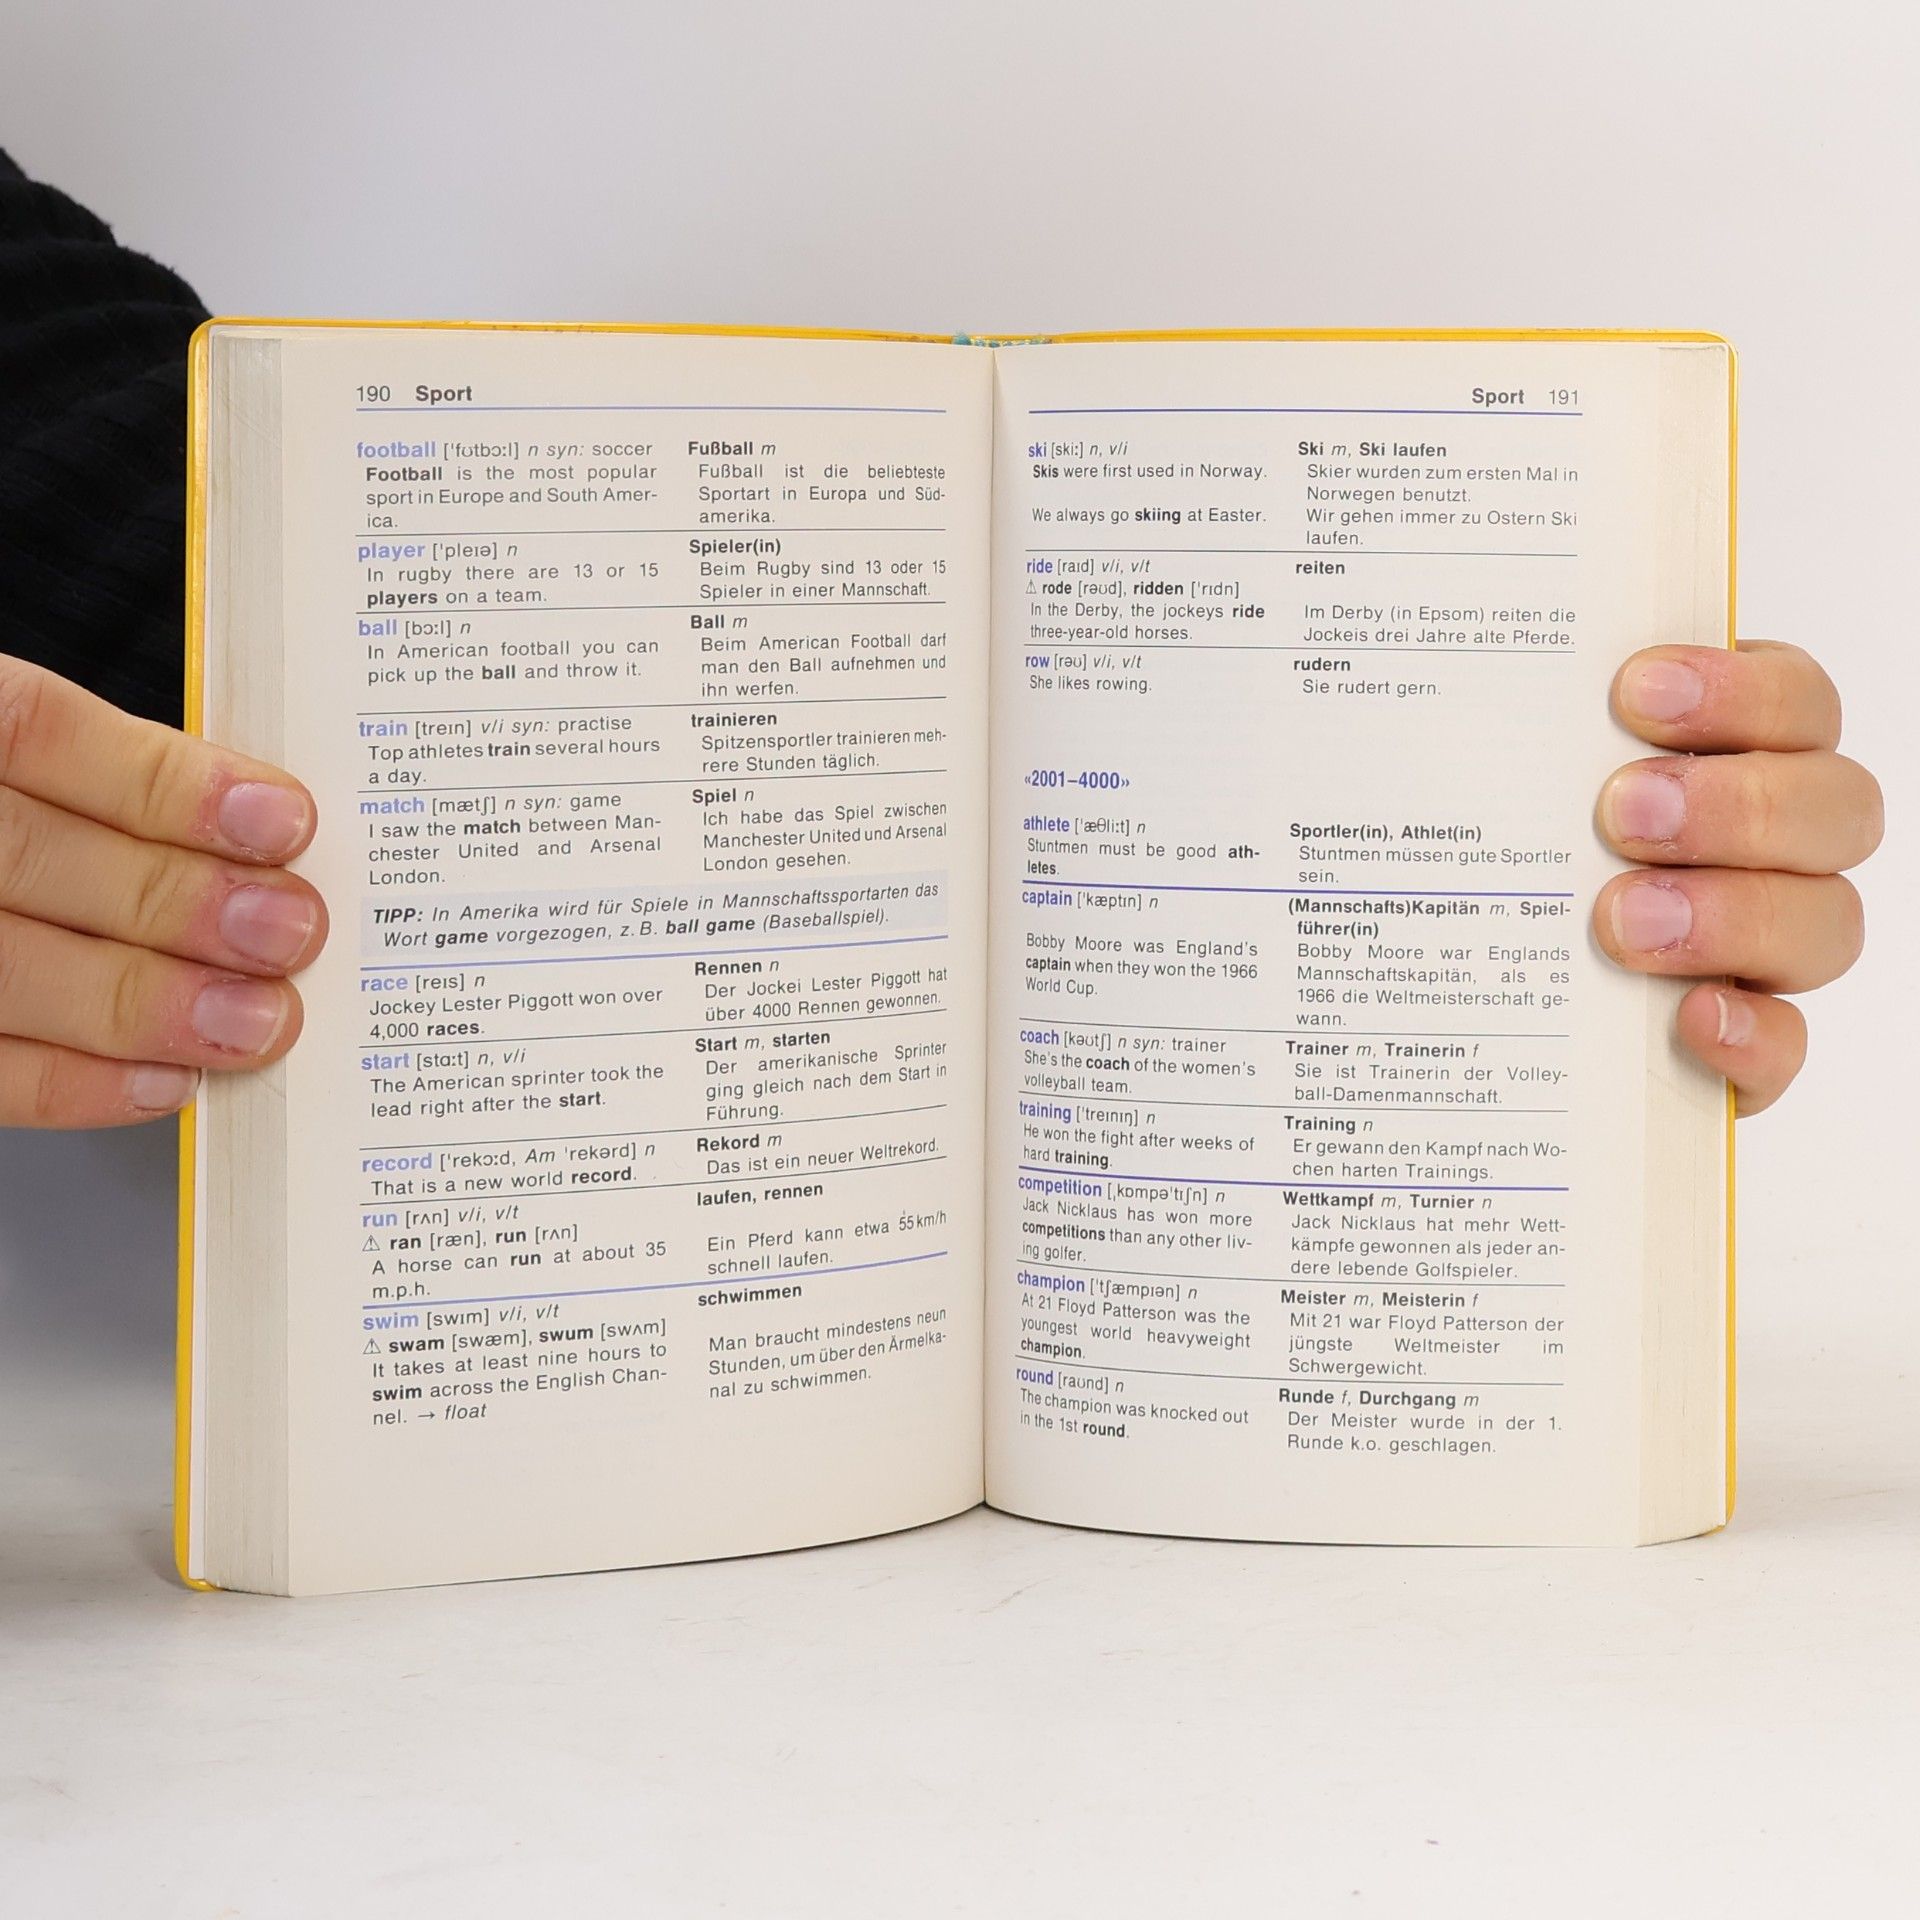 190 Sport
football ['fʊtbɔːl] n syn: soccer
Football is the most popular
sport in Europe and South Amer-
ica.
Fußball m
Fußball ist die beliebteste
Sportart in Europa und Süd-
amerika.
player ['pleɪə] n
In rugby there are 13 or 15
players on a team.
Spieler(in)
Beim Rugby sind 13 oder 15
Spieler in einer Mannschaft.
ball [bɔːl] n
In American football you can
pick up the ball and throw it.
Ball m
Beim American Football darf
man den Ball aufnehmen und
ihn werfen.
train [treɪn] v/i syn: practise
Top athletes train several hours
a day.
trainieren
Spitzensportler trainieren meh-
rere Stunden täglich.
match [mætʃ] n syn: game
I saw the match between Man-
chester United and Arsenal
London.
Spiel n
Ich habe das Spiel zwischen
Manchester United und Arsenal
London gesehen.
TIPP: In Amerika wird für Spiele in Mannschaftssportarten das
Wort game vorgezogen, z. B. ball game (Baseballspiel).
race [reɪs] n
Jockey Lester Piggott won over
4,000 races.
Rennen n
Der Jockei Lester Piggott hat
über 4000 Rennen gewonnen.
start [stɑːt] n, v/i
The American sprinter took the
lead right after the start.
Start m, starten
Der amerikanische Sprinter
ging gleich nach dem Start in
Führung.
record ['rekɔːd, Am 'rekərd] n
That is a new world record.
Rekord m
Das ist ein neuer Weltrekord.
run [rʌn] v/i, v/t
⚠ ran [ræn], run [rʌn]
A horse can run at about 35
m.p.h.
laufen, rennen
Ein Pferd kann etwa 55 km/h
schnell laufen.
swim [swɪm] v/i, v/t
⚠ swam [swæm], swum [swʌm]
It takes at least nine hours to
swim across the English Chan-
nel. → float
schwimmen
Man braucht mindestens neun
Stunden, um über den Ärmelka-
nal zu schwimmen.
Sport 191
ski [skiː] n, v/i
Skis were first used in Norway.
We always go skiing at Easter.
Ski m, Ski laufen
Skier wurden zum ersten Mal in
Norwegen benutzt.
Wir gehen immer zu Ostern Ski
laufen.
ride [raɪd] v/i, v/t
⚠ rode [rəʊd], ridden ['rɪdn]
In the Derby, the jockeys ride
three-year-old horses.
reiten
Im Derby (in Epsom) reiten die
Jockeis drei Jahre alte Pferde.
row [rəʊ] v/i, v/t
She likes rowing.
rudern
Sie rudert gern.
«2001–4000»
athlete ['æθliːt] n
Stuntmen must be good ath-
letes.
Sportler(in), Athlet(in)
Stuntmen müssen gute Sportler
sein.
captain ['kæptɪn] n
Bobby Moore was England's
captain when they won the 1966
World Cup.
(Mannschafts)Kapitän m, Spiel-
führer(in)
Bobby Moore war Englands
Mannschaftskapitän, als es
1966 die Weltmeisterschaft ge-
wann.
coach [kəʊtʃ] n syn: trainer
She's the coach of the women's
volleyball team.
Trainer m, Trainerin f
Sie ist Trainerin der Volley-
ball-Damenmannschaft.
training ['treɪnɪŋ] n
He won the fight after weeks of
hard training.
Training n
Er gewann den Kampf nach Wo-
chen harten Trainings.
competition [ˌkɒmpə'tɪʃn] n
Jack Nicklaus has won more
competitions than any other liv-
ing golfer.
Wettkampf m, Turnier n
Jack Nicklaus hat mehr Wett-
kämpfe gewonnen als jeder an-
dere lebende Golfspieler.
champion ['tʃæmpɪən] n
At 21 Floyd Patterson was the
youngest world heavyweight
champion.
Meister m, Meisterin f
Mit 21 war Floyd Patterson der
jüngste Weltmeister im
Schwergewicht.
round [raʊnd] n
The champion was knocked out
in the 1st round.
Runde f, Durchgang m
Der Meister wurde in der 1.
Runde k.o. geschlagen.